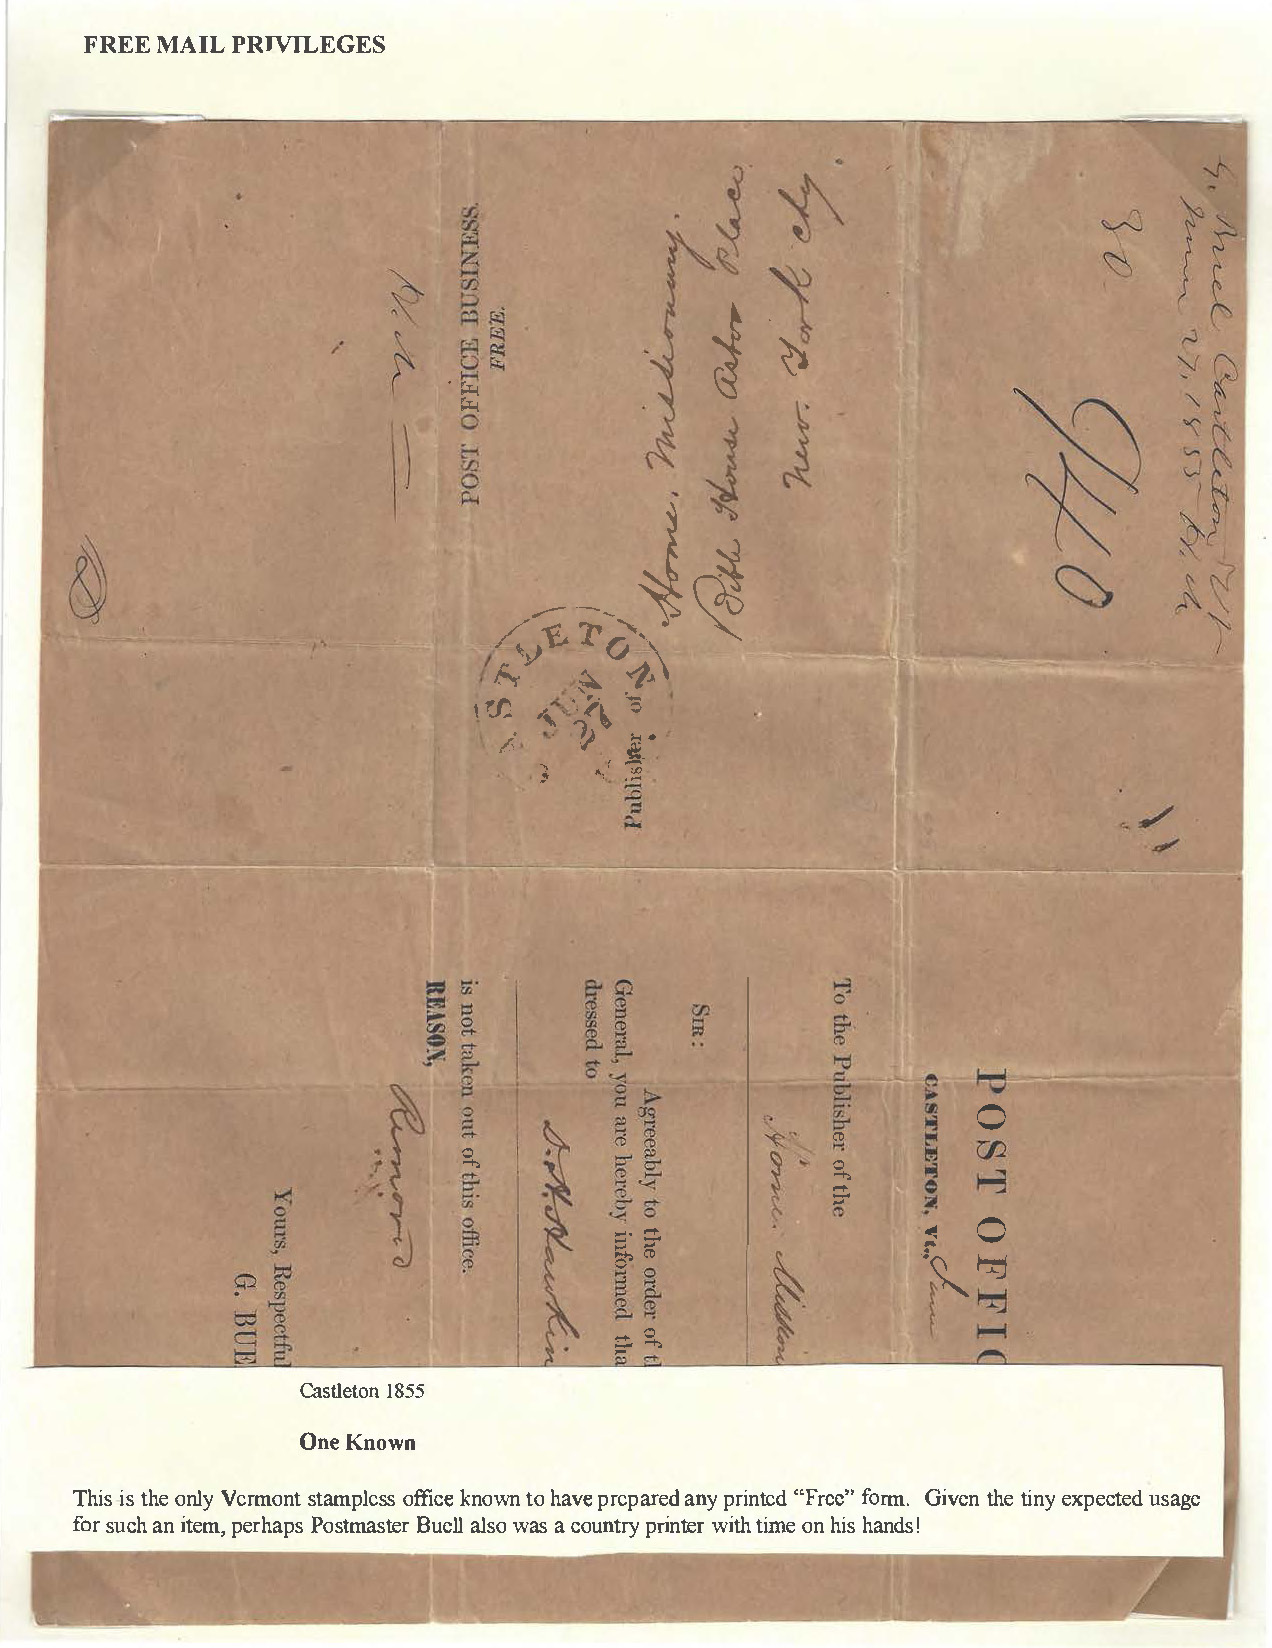 FREE MAIL PRIVILEGES
POST OFFICE BUSINESS.
FREE.
Publisher of
Home. Missionary.
Bible House Astor Place
New. York City.
CASTLETON
JUN
27
30
940
G. Buel Castleton Vt
June 27. 1855
POST OFFIC
CASTLETON, Vt., June
To the Publisher of the
Home. Mission
SIR:
Agreeably to the order of th
General, you are hereby informed tha
dressed to
S. H. Hawkin
is not taken out of this office.
REASON,
Removed
Yours, Respectful
G. BUE
Castleton 1855
One Known
This is the only Vermont stampless office known to have prepared any printed “Free” form. Given the tiny expected usage
for such an item, perhaps Postmaster Buell also was a country printer with time on his hands!